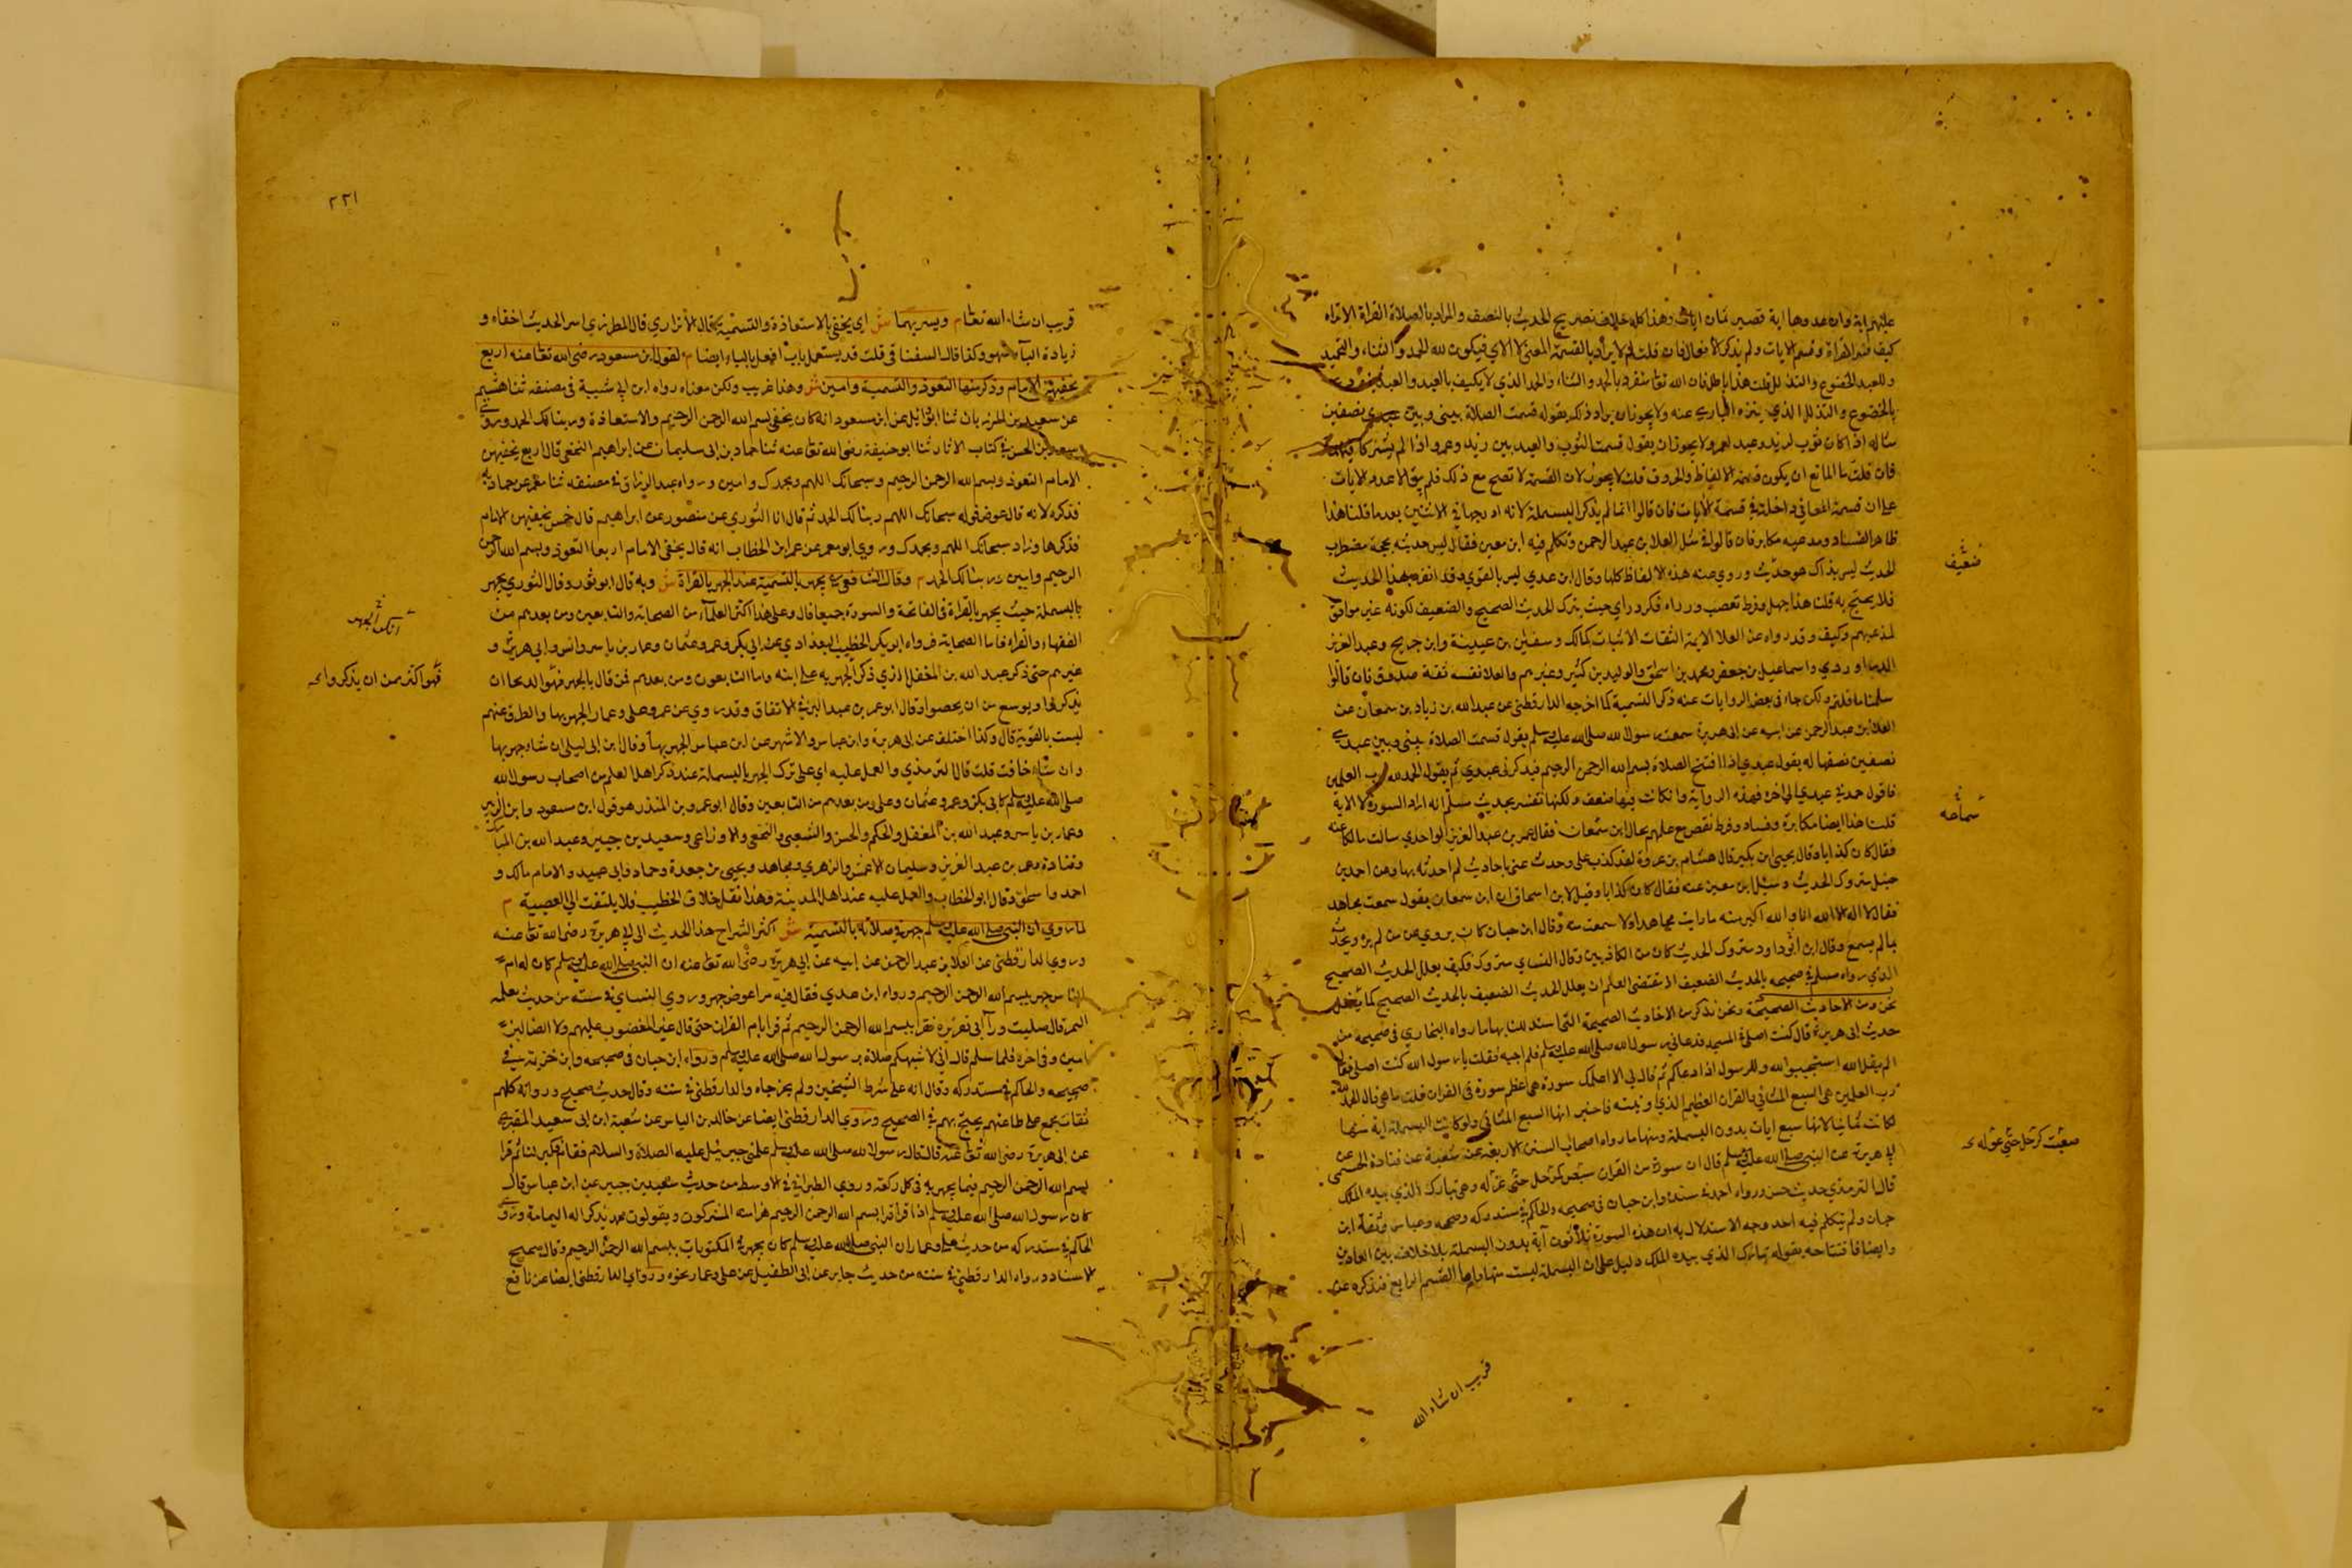 عليهم اية وان عدوها اية فصير ثمان ايات وهذا كله خلاف تصريح الحديث بالنصف والمراد بالصلاة القراة الا تراه
كيف فسر القراة وقسم الايات ولم يذكر الافعال فان قلت لم لا يراد بالقسمة المعنى لا الاي فيكون لله الحمد والثناء والتمجيد
وللعبد الخضوع والتذلل قلت هذا باطل فان الله تعا متفرد بالحمد والثناء والحمد الذي لا يكيف بالعبد والعبد
بالخضوع والتذلل الذي يتنزه الباري عنه ولا يجوز ان يراد ذلك بقوله قسمت الصلاة بيني وبين عبدي نصفين
مثاله اذا كان ثوب لزيد وعبد لعمرو لا يجوز ان يقول قسمت الثوب والعبد بين زيد وعمرو اذا لم يشتركا فيهما
فان قلت ما المانع ان يكون قسمة الالفاظ والحروف قلت لا يجوز لان القسمة لا تصح مع ذلك فلم يبق الا عدد الايات
على ان قسمة المعاني داخلة في قسمة الايات فان قالوا انما لم يذكر البسملة لانه ادرجها في الاثنين بعد ما قلنا هذا
ظاهر الفساد ومدعيه مكابر فان قالوا سئل العلا بن عبد الرحمن وتكلم فيه ابن معين فقال ليس حديثه بحجة مضطرب
الحديث ليس بذاك هو حديث وروي عنه هذه الالفاظ كلها وقال ابن عدي ليس بالقوي وقد انفرد بهذا الحديث
فلا يحتج به قلنا هذا جهل وفرط تعصب ورداء فكر وراي حيث يترك الحديث الصحيح والضعيف لكونه غير موافق
لمذهبهم وكيف وقد رواه عن العلا الايمة الثقات الاثبات كمالك وسفين بن عيينة وابن جريج وعبد العزيز
الدراوردي واسماعيل بن جعفر ومحمد بن اسحق والوليد بن كثير وغيرهم والعلا نفسه ثقة صدوق فان قالوا
سلمنا ما قلتم ولكن جاء في بعض الروايات عنه ذكر التسمية كما اخرجه الدارقطني عن عبد الله بن زياد بن سمعان عن
العلا بن عبد الرحمن عن ابيه عن ابي هريرة سمعت رسول الله صلى الله عليه وسلم يقول قسمت الصلاة بيني وبين عبدي
نصفين نصفها له يقول عبدي اذا افتتح الصلاة بسم الله الرحمن الرحيم فيذكرني عبدي ثم يقول الحمد لله رب العلمين
فاقول حمدني عبدي الي اخره فهذه الرواية وان كانت فيها ضعف ولكنها تفسير بحديث مسلم انه اراد السورة لا الاية
قلت هذا ايضا مكابرة وفساد وفرط نقص مع علمهم بحال ابن سمعان فقال عمر بن عبد العزيز الواحدي سالت مالكا عنه
فقال كان كذابا وقال يحيى ابن بكير قال هشام بن عروة لقد كذب علي وحدث عني باحاديث لم احدثه بها وعن احمد بن
حنبل متروك الحديث وسئل ابن معين عنه فقال كان كذابا وقيل لابن اسحاق ان ابن سمعان يقول سمعت مجاهد
فقال لا اله الا الله انا والله اكبر منه ما رايت مجاهدا ولا سمعت منه وقال ابن حبان كان يروي عن من لم يره ويحدث
بما لم يسمع وقال ابن ابي داود متروك الحديث كان من الكاذبين وقال النساي متروك فكيف يعلل الحديث الصحيح
الذي رواه مسلم في صحيحه بالحديث الضعيف الا تقتضى العلم ان يعلل الحديث الضعيف بالحديث الصحيح كما
نحن ومن الاحاديث الصحيحة ونحن نذكر من الاحاديث الصحيحة التي استدللنا بها ما رواه البخاري في صحيحه من
حديث ابي هريرة قال كنت اصلي في المسجد فدعاني رسول الله صلى الله عليه وسلم فلم اجبه فقلت يا رسول الله كنت اصلي فقال
الم يقل الله استجيبوا لله وللرسول اذا دعاكم ثم قال لي الا اعلمك سورة هي اعظم سورة في القران قلت ما هي قال الحمد لله
رب العلمين هي السبع المثاني والقران العظيم الذي اوتيته فاخبر انها السبع المثاني ولو كانت البسملة اية منها
لكانت ثمانيا لانها سبع ايات بدون البسملة ومنها ما رواه اصحاب السنن الاربعة عن شعبة عن قتادة عن
ابي هريرة عن النبي صلى الله عليه وسلم قال ان سورة من القران شفعت لرجل حتى غفر له وهي تبارك الذي بيده الملك
قال الترمذي حديث حسن ورواه احمد في مسنده وابن حبان في صحيحه والحاكم في مستدركه وصححه وعباس وثقه ابن
حبان ولم يتكلم فيه احد وجه الاستدلال به ان هذه السورة ثلاثون آية بدون البسملة بلا خلاف بين العادين
وايضا فافتتاحه بقوله تبارك الذي بيده الملك دليل على ان البسملة ليست منها واما القسم الرابع فنذكره عن
ضعيف
شفعت لرجل حتى غفر له
قريب ان شاء الله
٢٢١
قريب ان شاء الله تعا م ويسر بهما ش اي يخفي بالاستعاذة والتسمية قال الاترازي قال المطرزي اسر الحديث اخفاه و
زيادة الباء سهو وكذا قال السغناقي قلت قد يستعمل باب افعل بالباء ايضا م لقول ابن مسعود رضي الله تعا عنه اربع
يخفيهن الامام وذكر منها التعوذ والتسمية وامين ش وهذا غريب ولكن معناه رواه ابن ابي شيبة في مصنفه ثنا هشيم
عن سعيد بن المرزبان ثنا ابو وائل عن ابن مسعود انه كان يخفي بسم الله الرحمن الرحيم والاستعاذة وربنا لك الحمد وروي
محمد بن الحسن في كتاب الاثار ثنا ابو حنيفة رضي الله تعا عنه ثنا حماد بن ابي سليمان عن ابراهيم النخعي قال اربع يخفيهن
الامام التعوذ وبسم الله الرحمن الرحيم وسبحانك اللهم وبحمدك وامين ورواه عبد الرزاق في مصنفه ثنا معمر عن حماد به
فذكره لانه قال عوض قوله سبحانك اللهم ربنا لك الحمد ثم قال انا الثوري عن منصور عن ابراهيم قال خمس يخفيهن الامام
فذكرها وزاد سبحانك اللهم وبحمدك وروي ابو معمر عن عمر ابن الخطاب انه قال يخفي الامام اربعا التعوذ وبسم الله الرحمن
الرحيم وامين وربنا لك الحمد م وقال الشافعي يجهر بالتسمية عند الجهر بالقراة ش وبه قال ابو ثور وقال النووي يجهر
بالبسملة حيث يجهر بالقراة في الفاتحة والسورة جميعا قال وعلى هذا اكثر العلماء من الصحابة والتابعين ومن بعدهم من
الفقهاء والقراء فاما الصحابة فرواه ابو بكر الخطيب البغدادي عن ابي بكر وعمر وعثمان وعمار بن ياسر وانس وابي هريرة و
غيرهم حتى ذكر عبد الله بن المغفل الذي ذكر الجهر به على ابنه واما التابعون ومن بعدهم فمن قال بالجهر فهو
يذكروا ويوسع من ان يحصوا وقال ابو عمر بن عبد البر في الاتفاق وقد روي عن عمر وعلي وعمار الجهر بها والطرق عنهم
ليست بالقوية قال وكذا اختلف عن ابي هريرة وابن عباس والاشهر عن ابن عباس الجهر بها وقال ابن ابي ليلى ان شاء جهر بها
وان شاء خافت قلت قال الترمذي والعمل عليه اي على ترك الجهر بالبسملة عند ذكر اهل العلم من اصحاب رسول الله
صلى الله عليه وسلم كابي بكر وعمر وعثمان وعلي ومن بعدهم من التابعين وقال ابو عمرو بن المنذر هو قول ابن مسعود وابن الزبير
وعمار بن ياسر وعبد الله بن المغفل والحكم والحسن والشعبي والنخعي والاوزاعي وسعيد بن جبير وعبد الله بن المبارك
وقتادة وعمر بن عبد العزيز وسليمان الاعمش والزهري ومجاهد ويحيى بن جعدة وحماد وابي عبيد والامام مالك و
احمد واسحق وقال ابو الخطاب والعمل عليه عند اهل المدينة وهذا نقل خلاف الخطيب فلا يلتفت الي العصبية م
لما روي ان النبي صلى الله عليه وسلم جهر في صلاته بالتسمية ش اكثر الشراح هذا الحديث الى ابي هريرة رضي الله تعا عنه
وروي الدارقطني عن العلا بن عبد الرحمن عن ابيه عن ابي هريرة رضي الله تعا عنه ان النبي صلى الله عليه وسلم كان اذا ام
الناس جهر ببسم الله الرحمن الرحيم ورواه ابن عدي فقال فيه قرا عوض جهر وروي النساي في سننه من حديث نعيم
المجمر قال صليت وراء ابي هريرة فقرا ببسم الله الرحمن الرحيم ثم قرا بام القران حتى قال غير المغضوب عليهم ولا الضالين
امين وفي اخره فلما سلم قال اني لاشبهكم صلاة برسول الله صلى الله عليه وسلم ورواه ابن حبان في صحيحه وابن خزيمة في
صحيحه والحاكم في مستدركه وقال انه على شرط الشيخين ولم يخرجاه والدارقطني في سننه وقال حديث صحيح ورواته كلهم
ثقات مجمع على عدالتهم يحتج بهم في الصحيح وروي الدارقطني ايضا عن خالد بن الياس عن سعيد ابن ابي سعيد المقبري
عن ابي هريرة رضي الله تعا عنه قال قال رسول الله صلى الله عليه وسلم علمني جبرئيل عليه الصلاة والسلام فقام فكبر لنا ثم قرا
بسم الله الرحمن الرحيم فيما يجهر به في كل ركعة وروي الطبراني في الاوسط من حديث سعيد بن جبير عن ابن عباس قال
كان رسول الله صلى الله عليه وسلم اذا قرا قرا بسم الله الرحمن الرحيم هزا منه المشركون ويقولون محمد يذكر اله اليمامة وروي
الحاكم في مستدركه من حديث علي وعمار ان النبي صلى الله عليه وسلم كان يجهر في المكتوبات ببسم الله الرحمن الرحيم وقال صحيح
الاسناد ورواه الدارقطني في سننه من حديث جابر عن ابي الطفيل عن علي وعمار نحوه وروي الدارقطني ايضا عن نافع
فهو اكثر من ان يذكروا